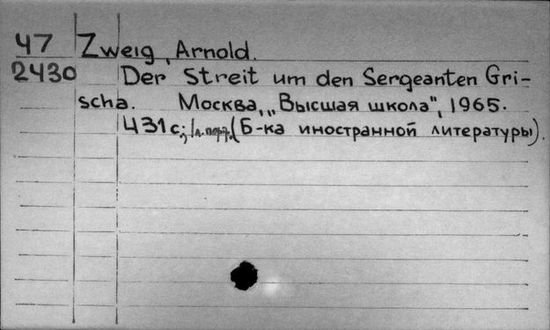 47 Zweig, Arnold.
2430 Der Streit um den Sergeanten Gri-
scha. Москва, „Высшая школа", 1965.
431 с.; 1 л. портр. (Б-ка иностранной литературы).